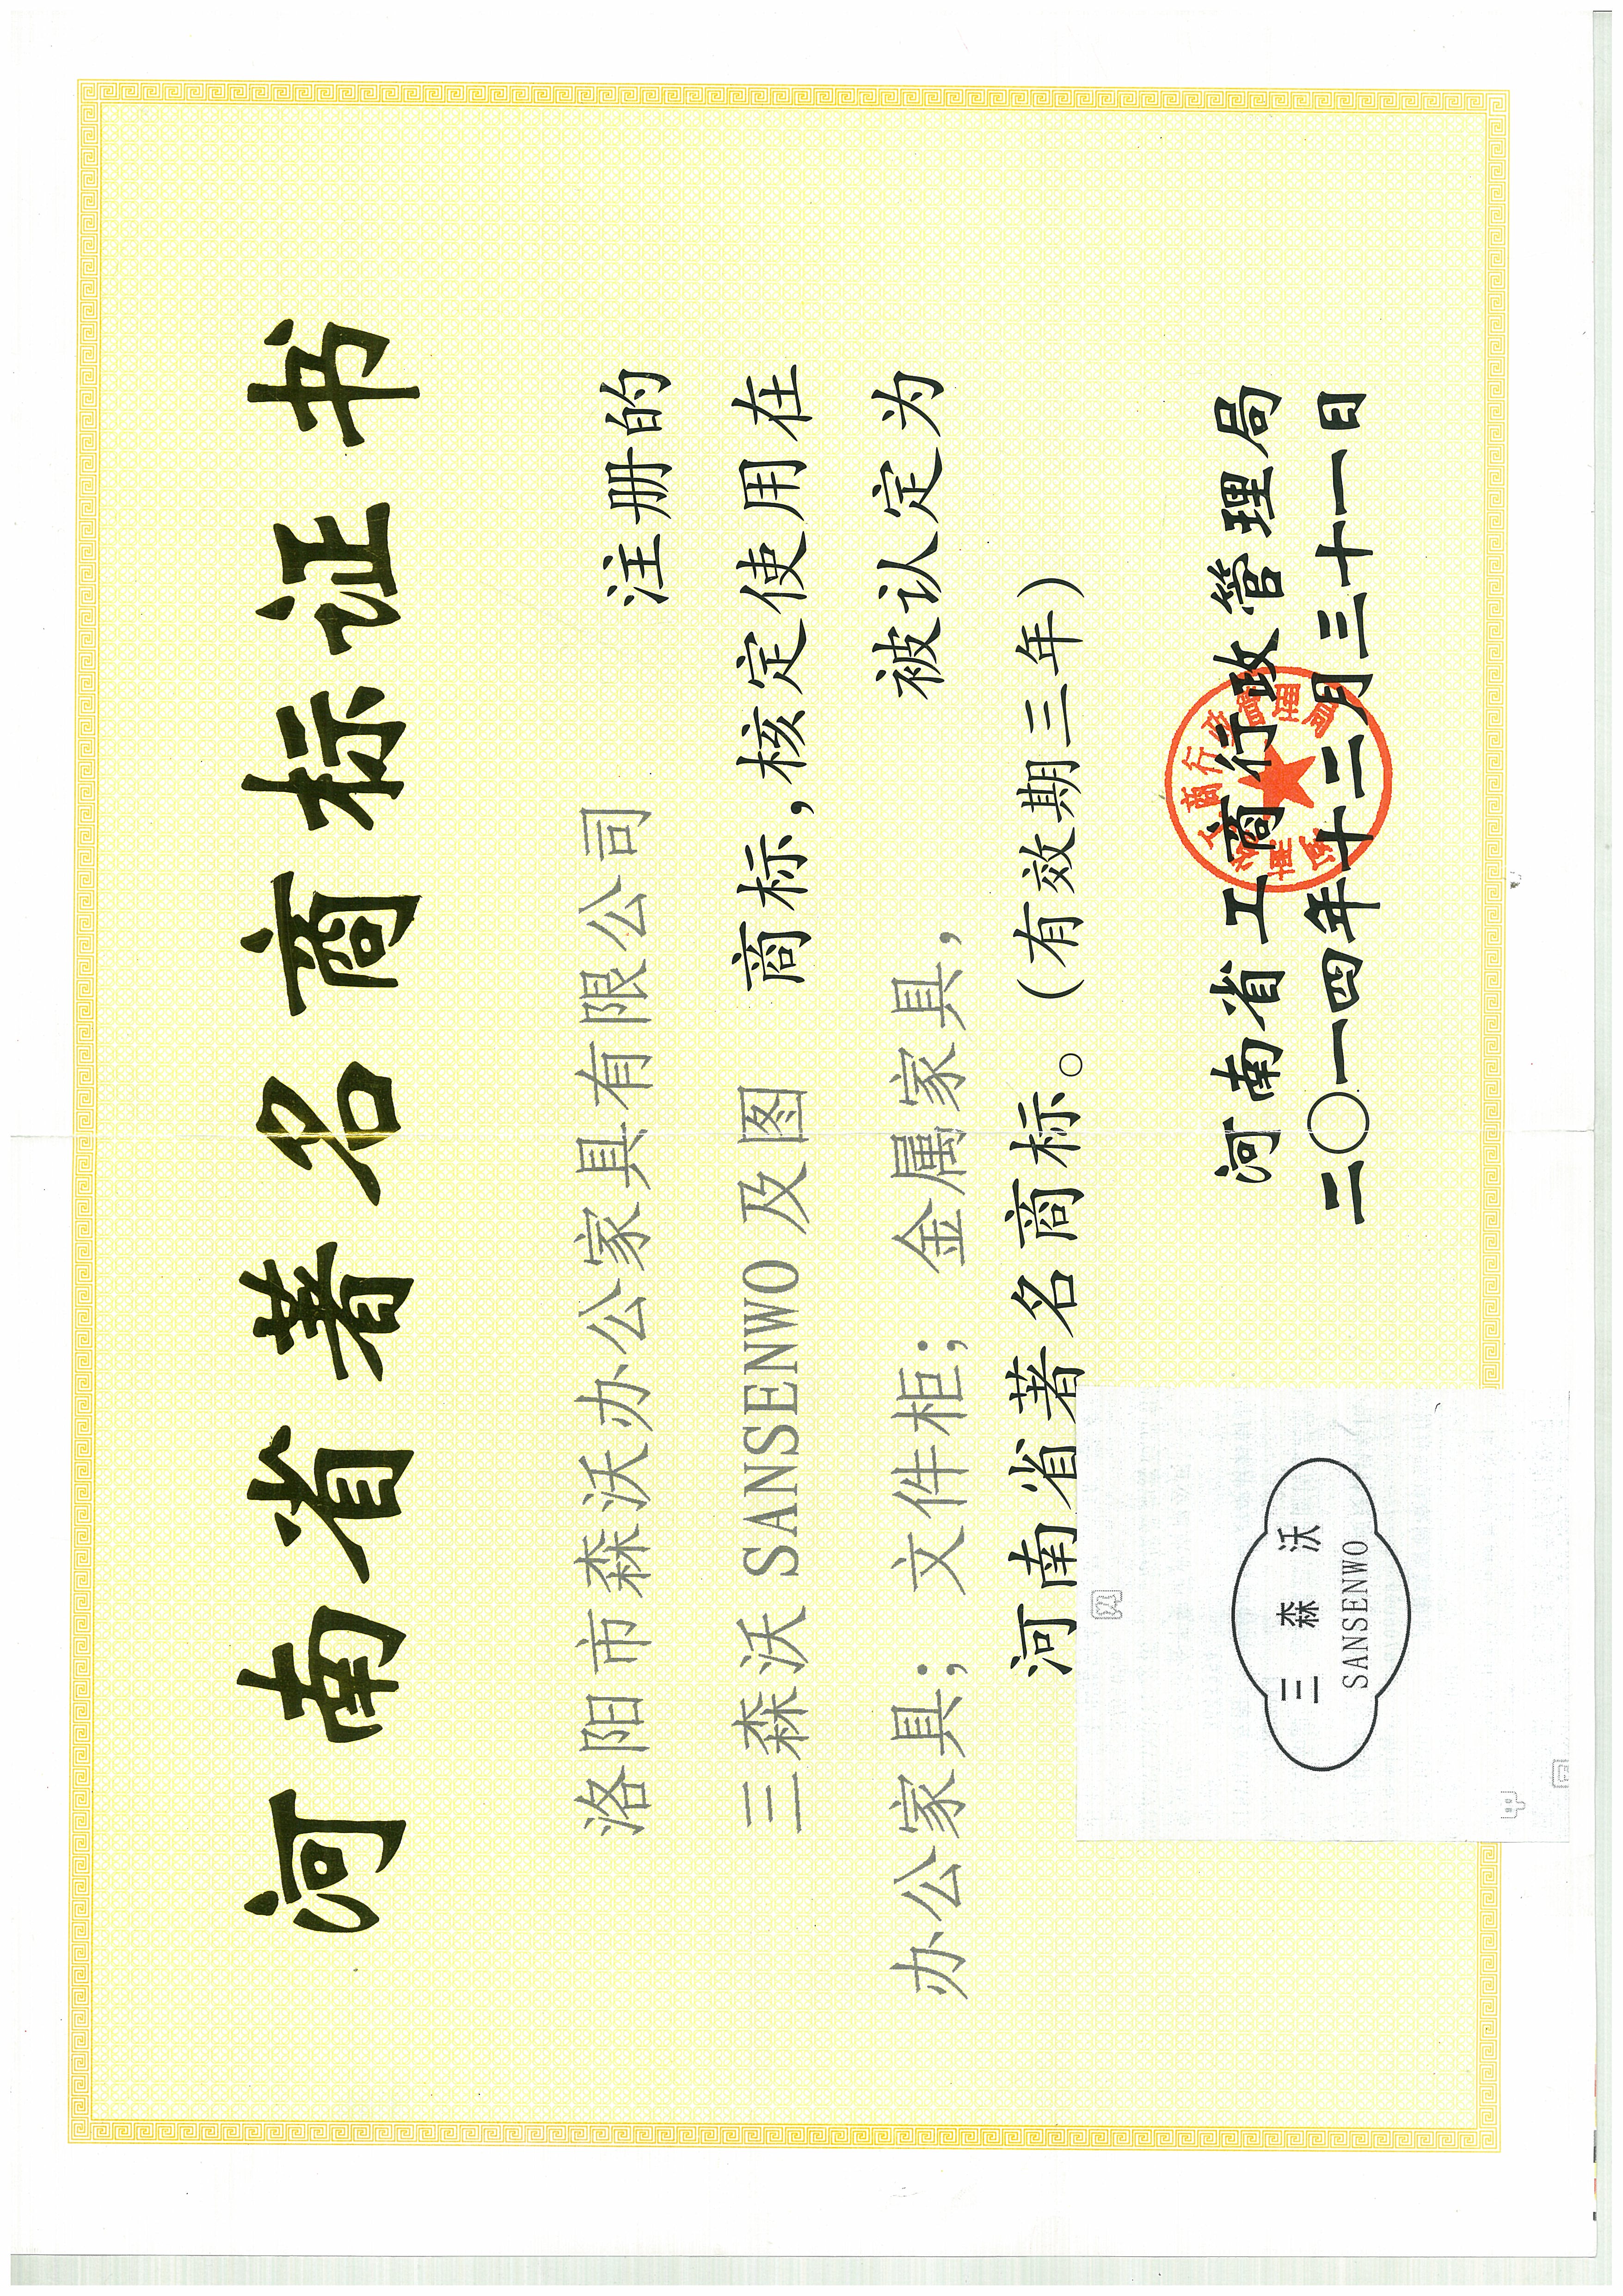 河南省著名商标证书
洛阳市森沃办公家具有限公司 注册的
三森沃 SANSENWO 及图 商标,核定使用在
办公家具；文件柜；金属家具， 被认定为
河南省著名商标。（有效期三年）
三 森 沃
SANSENWO
河南省工商行政管理局
二〇一四年十二月三十一日